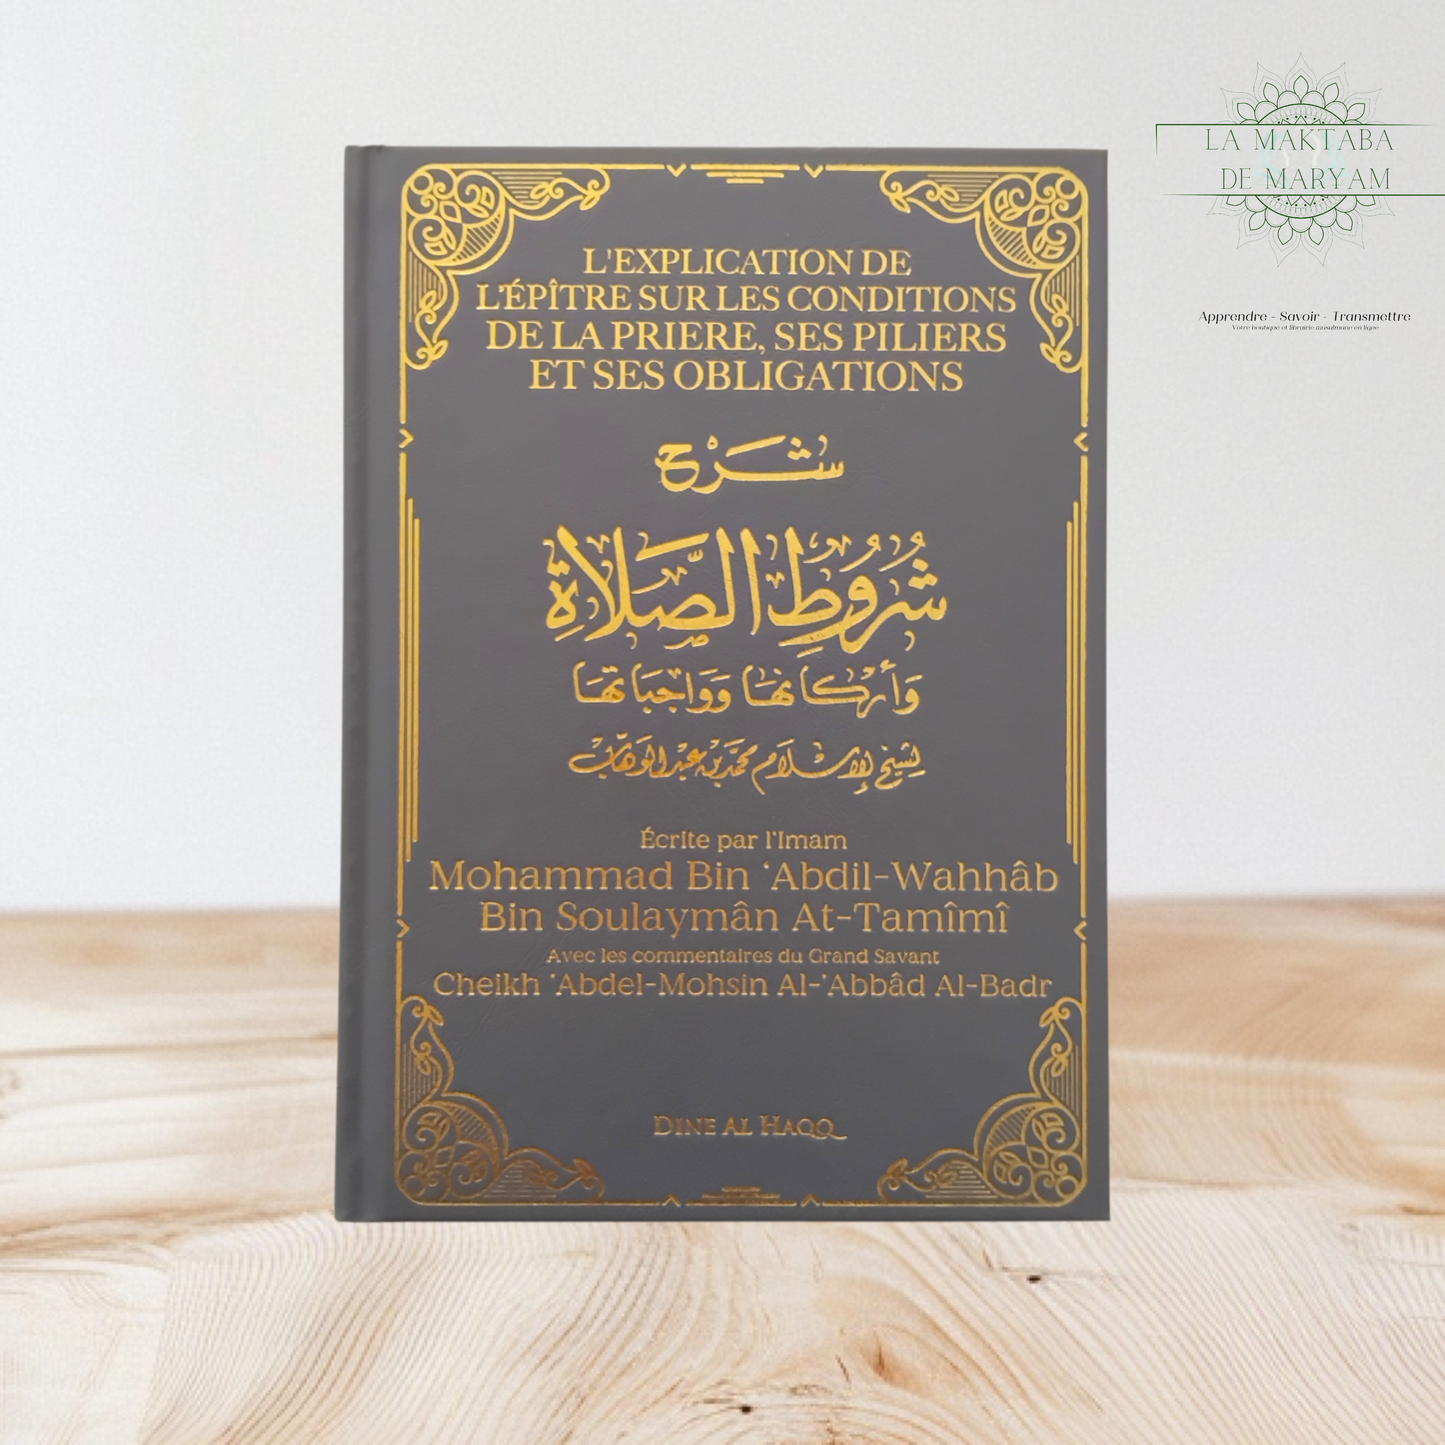 LA MAKTABA
DE MARYAM
Apprendre - Savoir - Transmettre
Votre boutique et librairie musulmane en ligne
L'EXPLICATION DE
L'ÉPÎTRE SUR LES CONDITIONS
DE LA PRIERE, SES PILIERS
ET SES OBLIGATIONS
شَرْح
شُرُوطِ الصَّلَاةِ
وَأَرْكَانهَا وَوَاجبَاتهَا
لشيخ الإسلام محمد بن عبد الوهاب
Écrite par l'Imam
Mohammad Bin ‘Abdil-Wahhâb
Bin Soulaymân At-Tamîmî
Avec les commentaires du Grand Savant
Cheikh 'Abdel-Mohsin Al-'Abbâd Al-Badr
DINE AL HAQQ